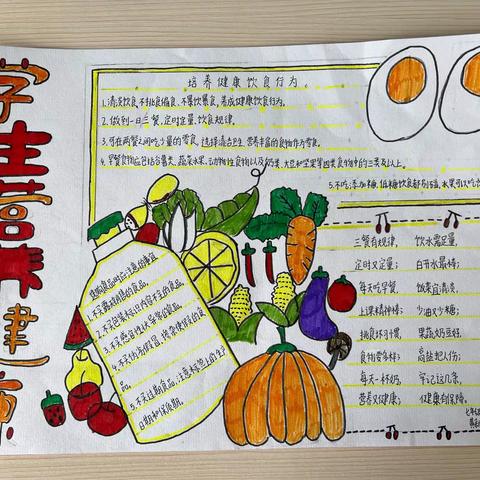 学生营养建言
培养健康饮食行为。
1.清淡饮食,不挑食偏食、不暴饮暴食,养成健康饮食行为。
2.做到一日三餐,定时定量,饮食规律。
3.可在两餐之间吃少量的零食,选择清洁卫生、营养丰富的食物作为零食。
4.早餐食物应包括谷薯类、蔬菜水果、动物性食物以及奶类、大豆和坚果等四类食物中的三类及以上。
5.不吃添加糖,低糖饮食都为
水果可以吃
选购食品时应注意的事宜
1.不买腐败
的食品。
2.不买包装标识内容不全的食品。
3.不买感官性状异常的食品。
4.不买伪劣假冒,掺杂使假的食
品。
5.不买过期食品,注意标签上的生产
日期和保质期。
三餐有规律,
饮水需足量,
定时又定量;
白开水最棒;
每天吃早餐
饭菜宜清淡,
上课精神棒;
少油又少糖;
挑食坏习惯,
果蔬奶豆好,
食物要多样;
高盐把人伤;
每天一杯奶,
牢记这几条,
营养又健康;
健康有保障。
七年级